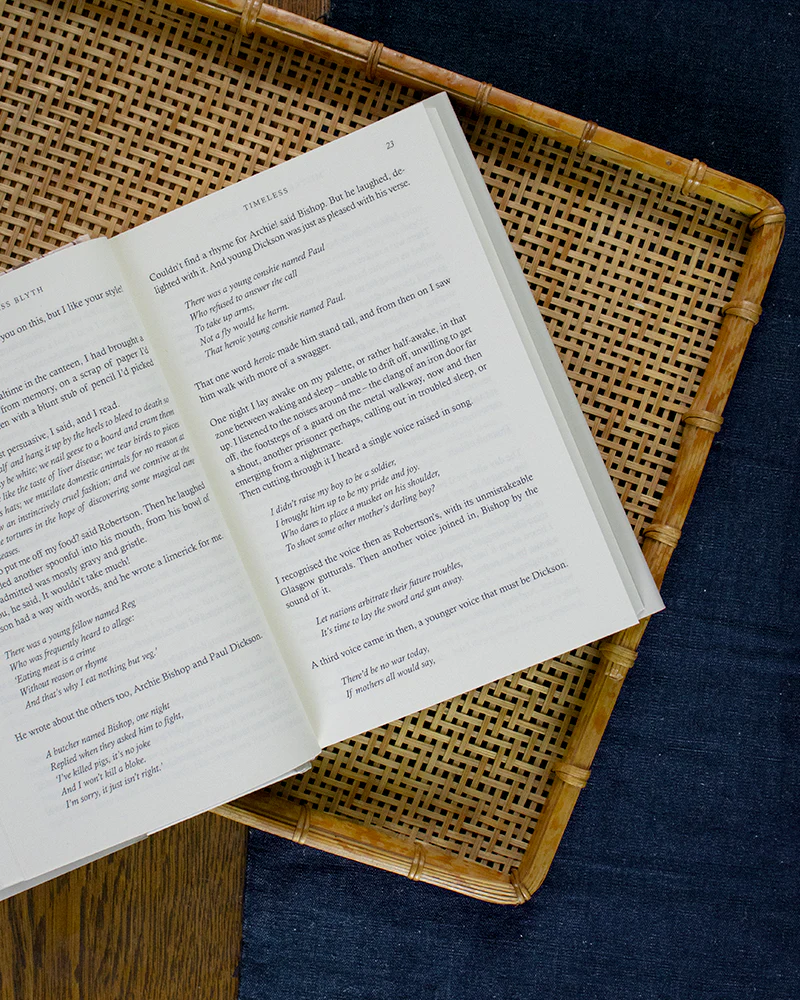 SS BLYTH
you on this, but I like your style!
altime in the canteen, I had brought a
from memory, on a scrap of paper I'd
en with a blunt stub of pencil I'd picked
st persuasive, I said, and I read.
alf and hang it up by the heels to bleed to death so
y be white; we nail geese to a board and cram them
like the taste of liver disease; we tear birds to pieces
s hats; we mutilate domestic animals for no reason at
w an instinctively cruel fashion; and we connive at the
e tortures in the hope of discovering some magical cure
eases.
o put me off my food? said Robertson. Then he laughed
led another spoonful into his mouth, from his bowl of
admitted was mostly gravy and gristle:
u, he said, It wouldn't take much!
son had a way with words, and he wrote a limerick for me.
There was a young fellow named Reg
Who was frequently heard to allege:
'Eating meat is a crime
Without reason or rhyme
And that's why I eat nothing but veg.'
He wrote about the others too, Archie Bishop and Paul Dickson.
A butcher named Bishop, one night
Replied when they asked him to fight,
'I've killed pigs, it's no joke
And I won't kill a bloke.
I'm sorry, it just isn't right.'
TIMELESS 23
Couldn't find a rhyme for Archie! said Bishop. But he laughed, de-
lighted with it. And young Dickson was just as pleased with his verse.
There was a young conshie named Paul
Who refused to answer the call
To take up arms.
Not a fly would he harm.
That heroic young conshie named Paul.
That one word heroic made him stand tall, and from then on I saw
him walk with more of a swagger.
One night I lay awake on my palette, or rather half-awake, in that
zone between waking and sleep – unable to drift off, unwilling to get
up. I listened to the noises around me – the clang of an iron door far
off, the footsteps of a guard on the metal walkway, now and then
a shout, another prisoner perhaps, calling out in troubled sleep, or
emerging from a nightmare.
Then cutting through it I heard a single voice raised in song.
I didn't raise my boy to be a soldier,
I brought him up to be my pride and joy.
Who dares to place a musket on his shoulder,
To shoot some other mother's darling boy?
I recognised the voice then as Robertson's, with its unmistakeable
Glasgow gutturals. Then another voice joined in, Bishop by the
sound of it.
Let nations arbitrate their future troubles,
It's time to lay the sword and gun away.
A third voice came in then, a younger voice that must be Dickson.
There'd be no war today,
If mothers all would say,